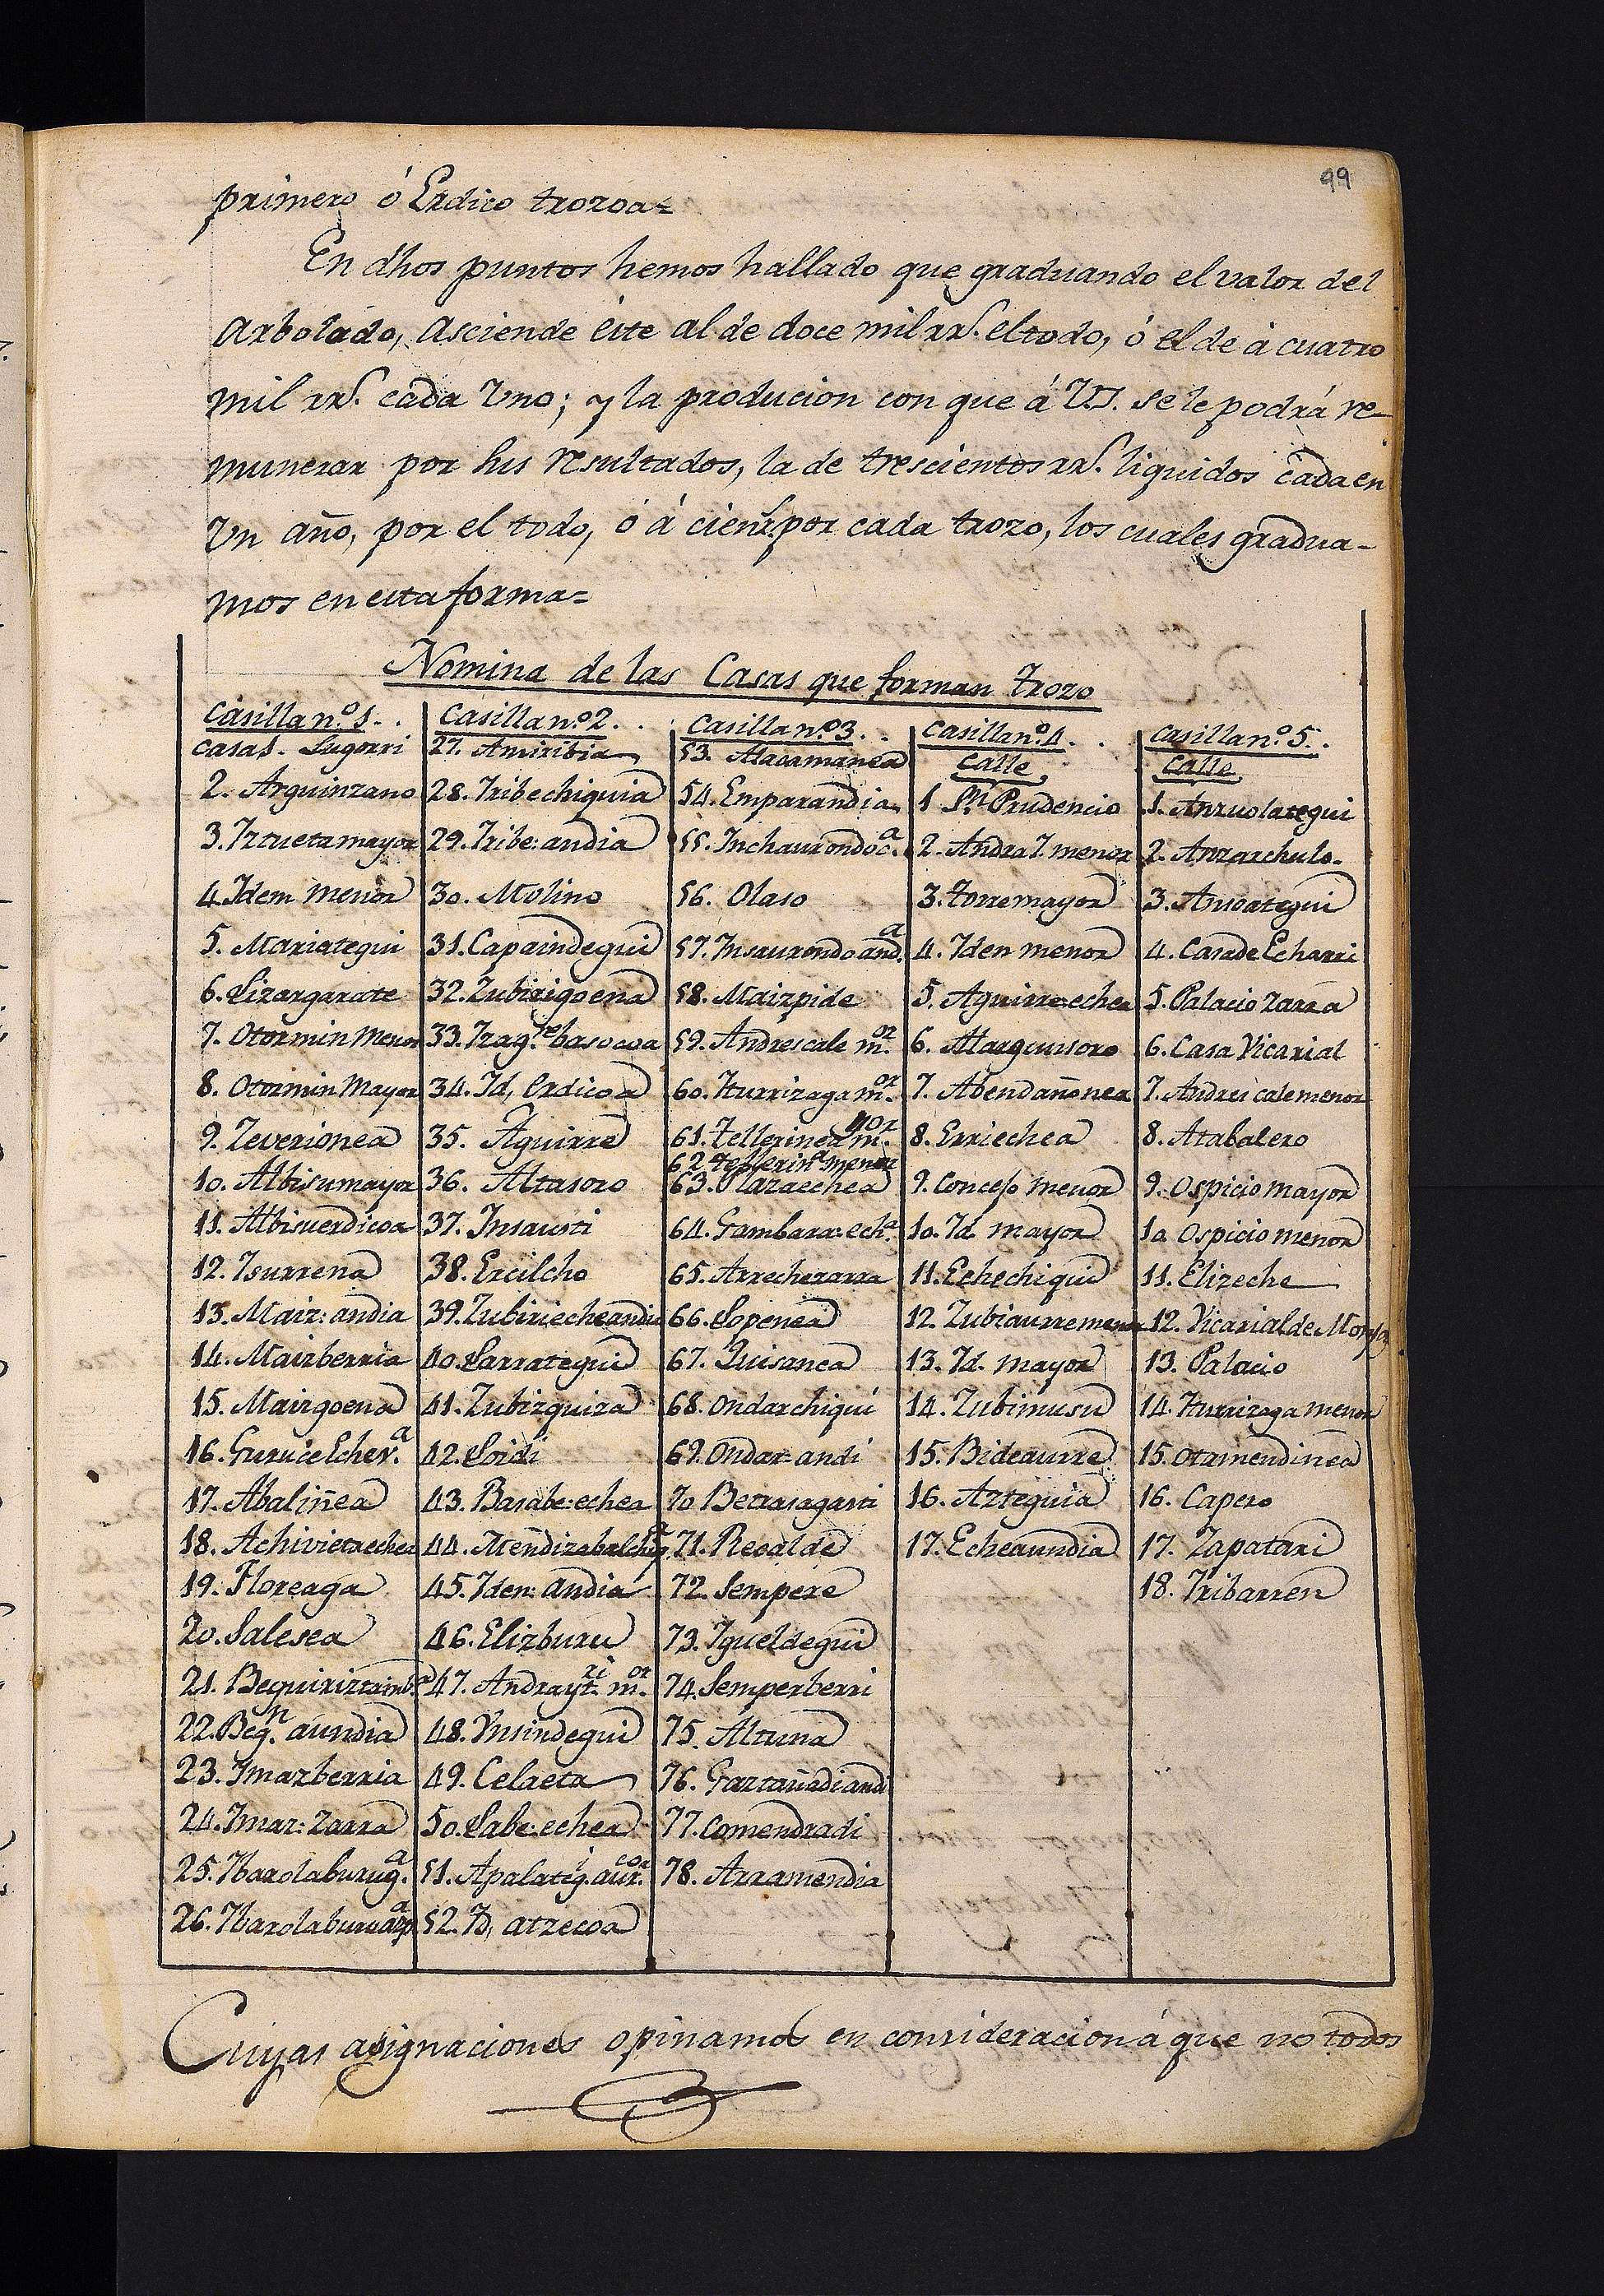 99
primero ó Erdico trozoa=
En dhos puntos hemos hallado que graduando el valor del
Arbolado, Asciende éste al de doce mil rrs. el todo, ó el de á cuatro
mil rrs. cada Uno; y la producion con que á V.S. se le podrá re-
munerar por sus resultados, la de trescientos rrs. liquidos cada en
Un año, por el todo, ó á cien rs. por cada trozo, los cuales gradua-
mos en esta forma=
Nomina de las Casas que forman trozo
Casilla nº. 1..
casa 1. Lugorri
2. Arguinzano
3. Iztueta mayor
4. Idem menor
5. Mariategui
6. Lizargarate
7. Otormin Menor
8. Otormin Mayor
9. Zeverionea
10. Albisumayor
11. Albisuerdicoa
12. Isurrena
13. Maiz: andia
14. Maizberria
15. Maizgoena
16. Guruce Echev.a
17. Abaliñea
18. Achivietaechea
19. Floreaga
20. Salesea
21. Bequirizta
22. Beq.n aundia
23. Imazberria
24. Imaz: zarra
25. Ibarolaburug.a
26. Ibarolaburuazp.a
Casilla nº. 2..
27. Amiribia
28. Iribechiquia
29. Iribe: andia
30. Molino
31. Capaindegui
32. Zubirigoena
33. Izag.re basocoa
34. Id, Erdicoa
35. Aguirre
36. Altasoro
37. Insausti
38. Ercilcho
39. Zubiriecheandia
40. Sarrategui
41. Zubizquiza
42. Loidi
43. Basabe: echea
44. Mendizabalchiq
45. Iden: andia
46. Elizburu
47. Andrayt.zi m.or
48. Ynsindegui
49. Celaeta
50. Labe: echea
51. Apalateg.i aur.coa
52. Id, atzecoa
Casilla nº. 3..
53. Macamanea
54. Emparandia
55. Inchaurondoc.a
56. Olaso
57. Insaurondoand.a
58. Maizpide
59. Andrescale m.or
60. Iturrizaga m.or
61. Tellerinea m.yor
62 tellerin.a menor
63. Plazaechea
64. Gambara: ech.a
65. Arrechezarra
66. Lopenea
67. Luisanea
68. Ondarchiqui
69. Ondar: andi
70 Betrasagasti
71. Recalde
72. Sempere
73. Igueldegui
74. Semperberri
75. Altuna
76. Gaztañadiandi
77. Comendradi
78. Arramendia
Casilla nº. 4..
Calle
1 Sn. Prudencio
2. Andra I. menor
3. torremayor
4. Iden menor
5. Aguirre echea
6. Marquusoro
7. Abendañonea
8. Erriechea
9. Concejo menor
10. Id. mayor
11. Echechiqui
12. Zubiaurremenor
13. Id. mayor
14. Zubimusu
15. Bideaurre
16. Azteguia
17. Echeaundia
Casilla nº. 5..
Calle
1. Anzuolategui
2. Anzarchulo.
3. Amoategui
4. Casa de Echarri
5. Palacio zarra
6. Casa Vicarial
7. Andres cale menor
8. Atabalero
9. Ospicio mayor
10. Ospicio menor
11. Elizeche
12. Vicarial de Monjas
13. Palacio
14. Iturrizaga menor
15. Otamendinea
16. Capero
17. Zapatari
18. Iribarren
Cuyas asignaciones opinamos en consideracion á que no todos